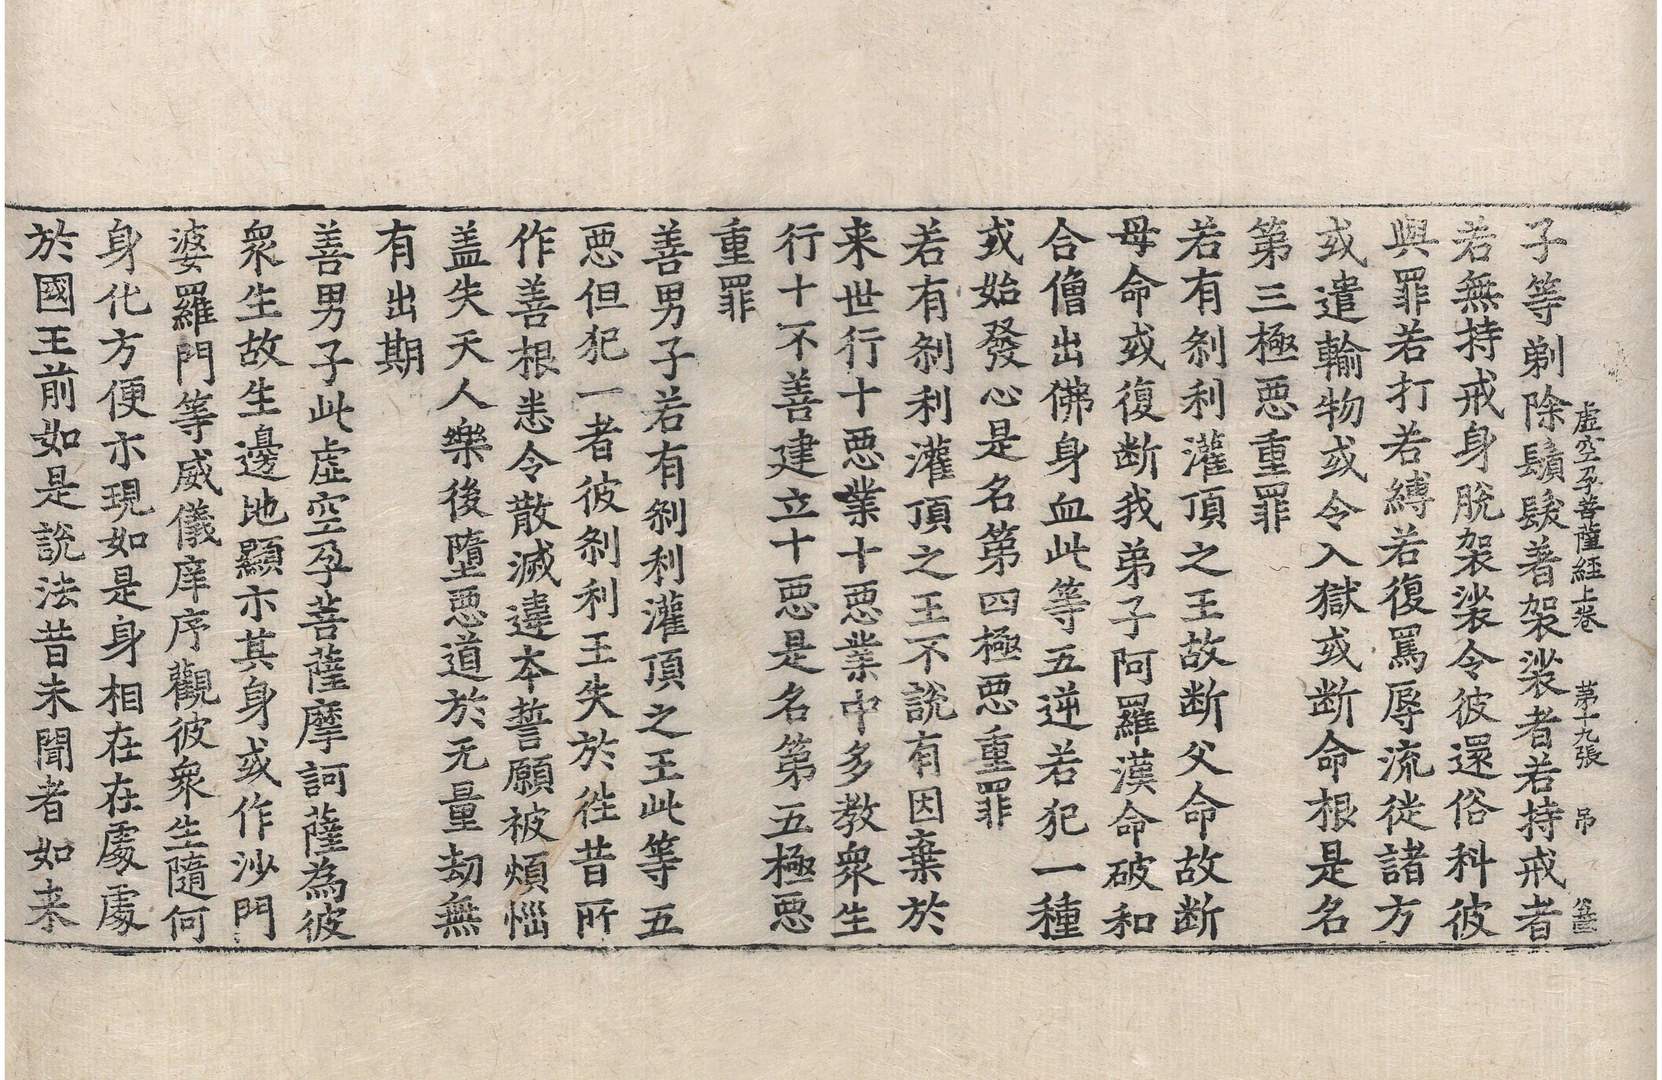 虛空孕菩薩經上卷 第十九張 吊
子等剃除鬚髮著袈裟者若持戒者
若無持戒身脫袈裟令彼還俗科彼
與罪若打若縛若復罵辱流徙諸方
或遣輸物或令入獄或断命根是名
第三極惡重罪
若有刹利灌頂之王故断父命故断
母命或復断我弟子阿羅漢命破和
合僧出佛身血此等五逆若犯一種
或始發心是名第四極惡重罪
若有刹利灌頂之王不說有因棄於
来世行十惡業十惡業中多教衆生
行十不善建立十惡是名第五極惡
重罪
善男子若有刹利灌頂之王此等五
惡但犯一者彼刹利王失於往昔所
作善根悉令散滅違本誓願被煩惱
盖失天人樂後墮惡道於无量劫無
有出期
善男子此虛空孕菩薩摩訶薩為彼
衆生故生邊地顯示其身或作沙門
婆羅門等威儀庠序觀彼衆生隨何
身化方便示現如是身相在在處處
於國王前如是說法昔未聞者如来